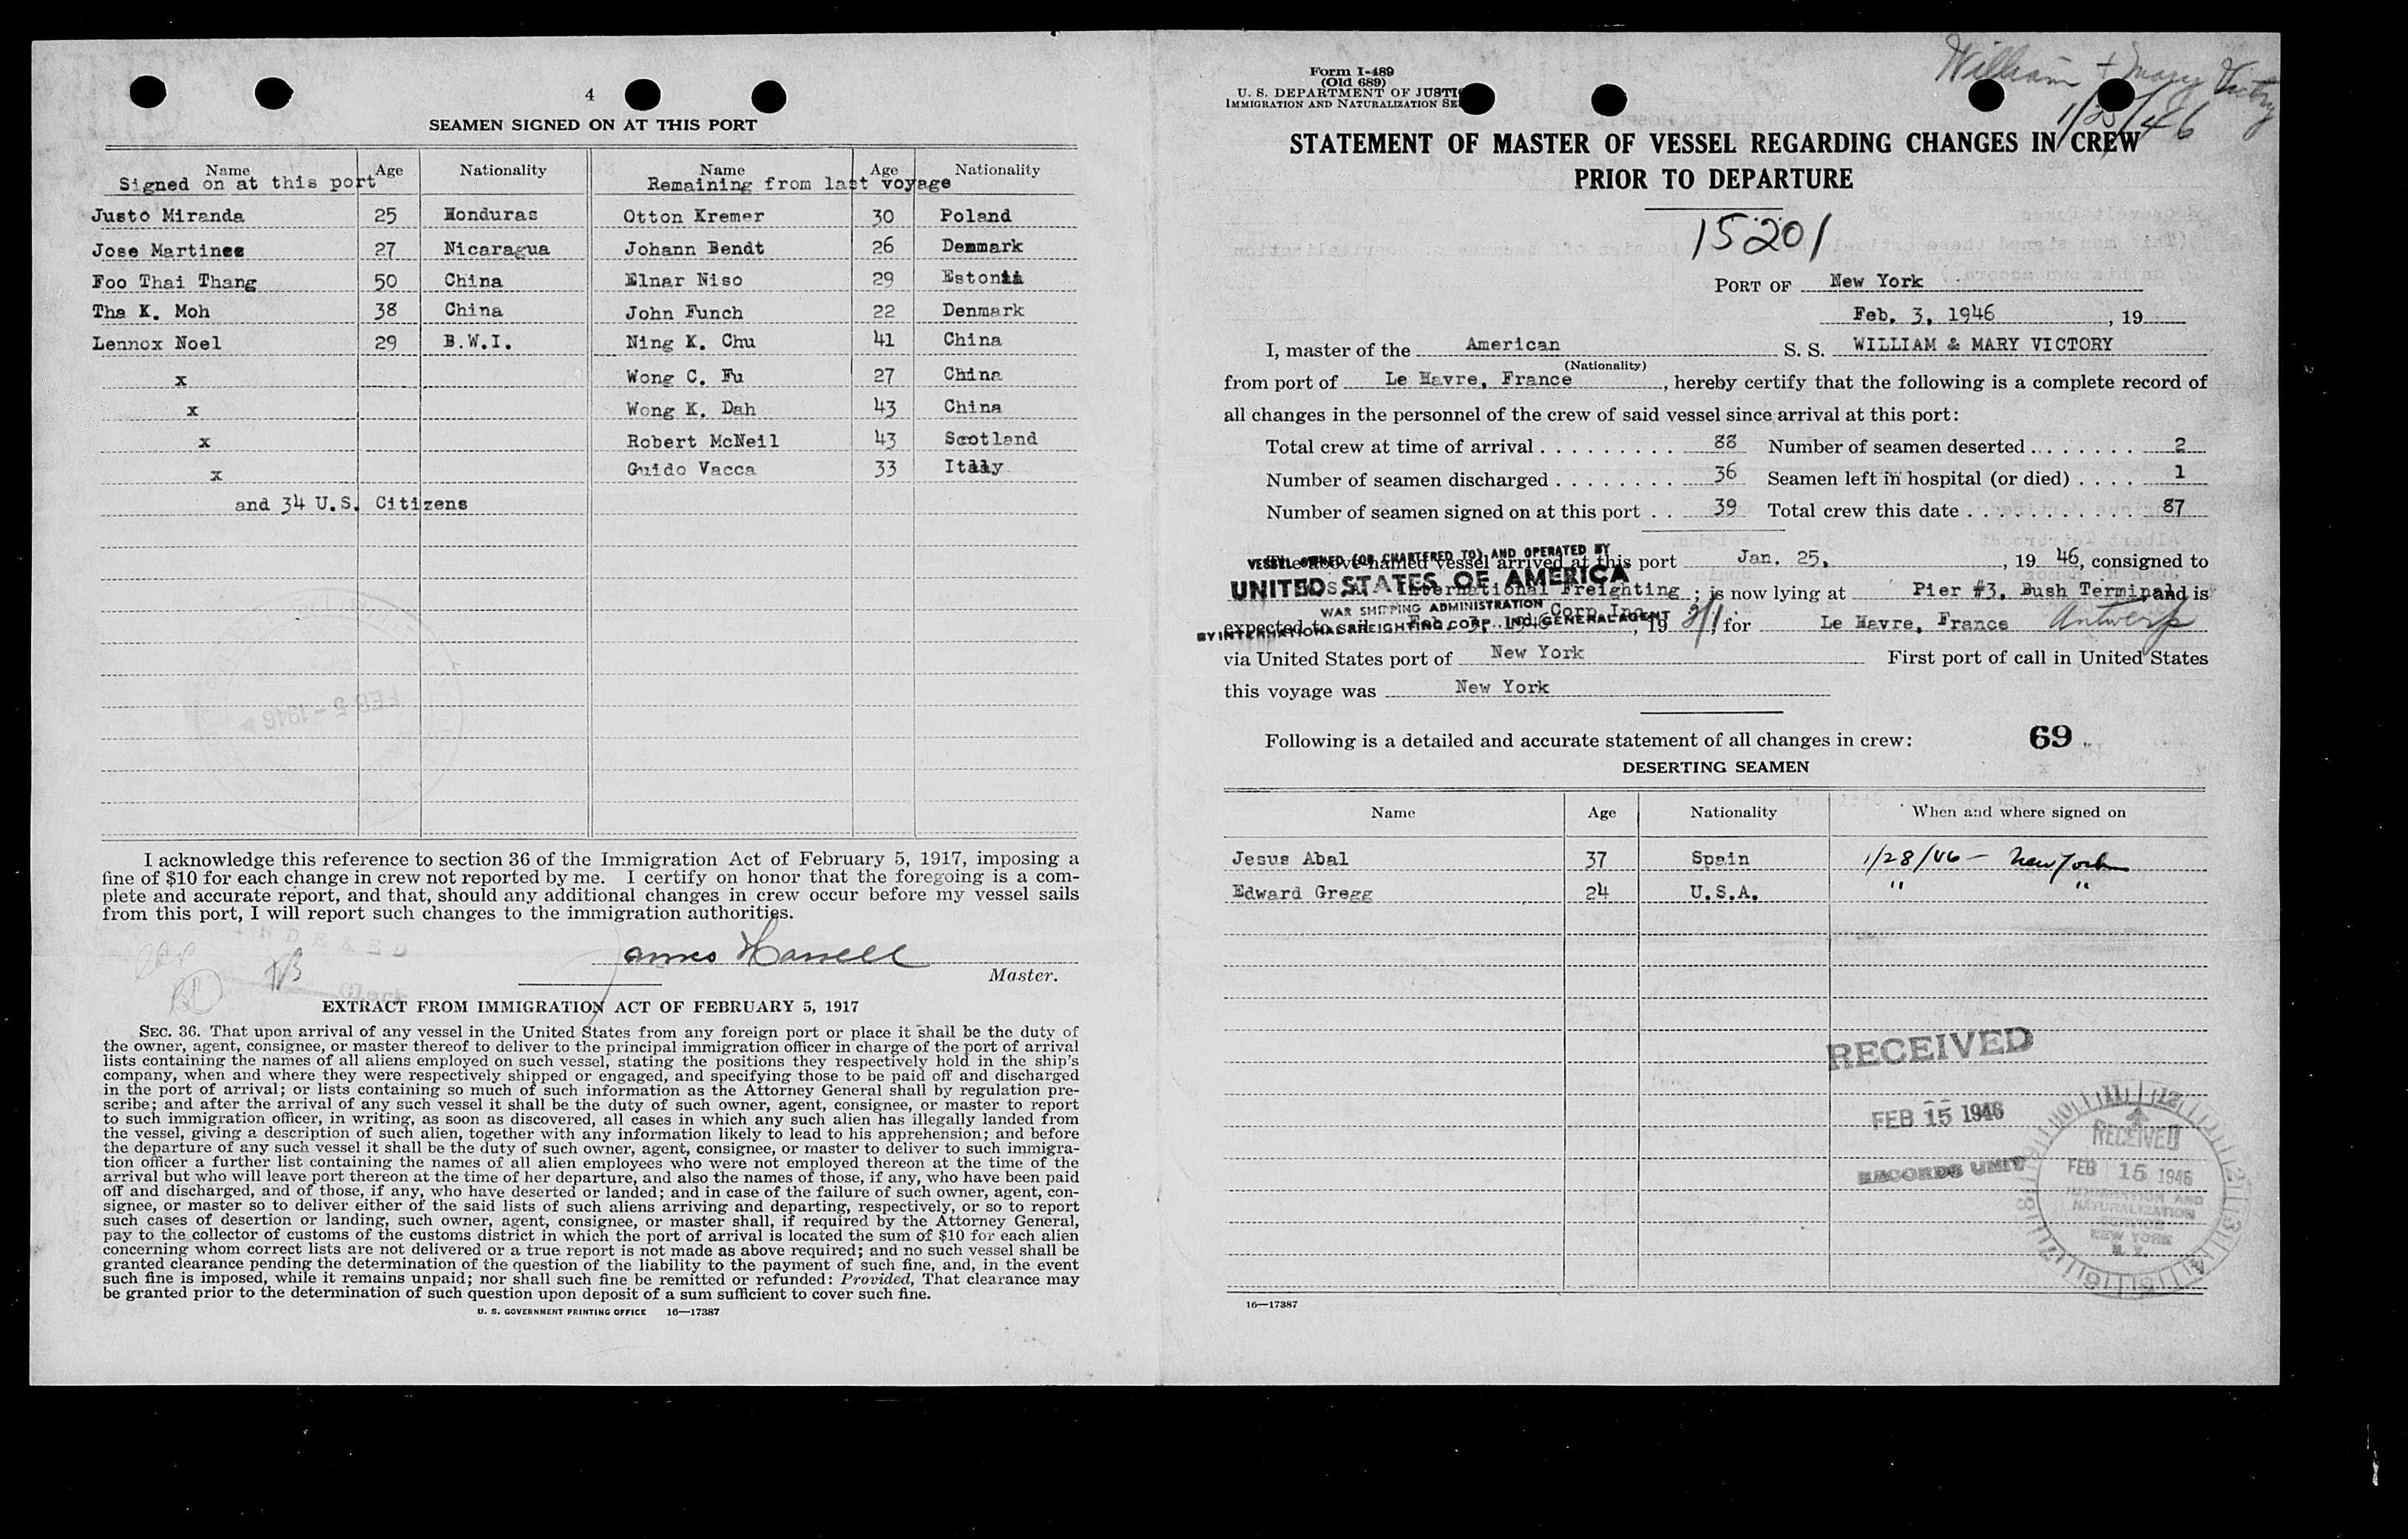 4
SEAMEN SIGNED ON AT THIS PORT
Name Age Nationality Name Age Nationality
Signed on at this port Remaining from last voyage
Justo Miranda 25 Honduras Otton Kremer 30 Poland
Jose Martinee 27 Nicaragua Johann Bendt 26 Denmark
Foo Thai Thang 50 China Elnar Niso 29 Estonia
Tha K. Moh 38 China John Funch 22 Denmark
Lennox Noel 29 B.W.I. Ning K. Chu 41 China
x Wong C. Fu 27 China
x Wong K. Dah 43 China
x Robert McNeil 43 Scotland
x Guido Vacca 33 Italy
and 34 U.S. Citizens
FEB 5 - 1946
I acknowledge this reference to section 36 of the Immigration Act of February 5, 1917, imposing a
fine of $10 for each change in crew not reported by me. I certify on honor that the foregoing is a com-
plete and accurate report, and that, should any additional changes in crew occur before my vessel sails
from this port, I will report such changes to the immigration authorities.
INDEXED
Clerk
Master.
EXTRACT FROM IMMIGRATION ACT OF FEBRUARY 5, 1917
SEC. 36. That upon arrival of any vessel in the United States from any foreign port or place it shall be the duty of
the owner, agent, consignee, or master thereof to deliver to the principal immigration officer in charge of the port of arrival
lists containing the names of all aliens employed on such vessel, stating the positions they respectively hold in the ship's
company, when and where they were respectively shipped or engaged, and specifying those to be paid off and discharged
in the port of arrival; or lists containing so much of such information as the Attorney General shall by regulation pre-
scribe; and after the arrival of any such vessel it shall be the duty of such owner, agent, consignee, or master to report
to such immigration officer, in writing, as soon as discovered, all cases in which any such alien has illegally landed from
the vessel, giving a description of such alien, together with any information likely to lead to his apprehension; and before
the departure of any such vessel it shall be the duty of such owner, agent, consignee, or master to deliver to such immigra-
tion officer a further list containing the names of all alien employees who were not employed thereon at the time of the
arrival but who will leave port thereon at the time of her departure, and also the names of those, if any, who have been paid
off and discharged, and of those, if any, who have deserted or landed; and in case of the failure of such owner, agent, con-
signee, or master so to deliver either of the said lists of such aliens arriving and departing, respectively, or so to report
such cases of desertion or landing, such owner, agent, consignee, or master shall, if required by the Attorney General,
pay to the collector of customs of the customs district in which the port of arrival is located the sum of $10 for each alien
concerning whom correct lists are not delivered or a true report is not made as above required; and no such vessel shall be
granted clearance pending the determination of the question of the liability to the payment of such fine, and, in the event
such fine is imposed, while it remains unpaid; nor shall such fine be remitted or refunded: Provided, That clearance may
be granted prior to the determination of such question upon deposit of a sum sufficient to cover such fine.
U. S. GOVERNMENT PRINTING OFFICE 16—17387
William + Mary Victory
1/25/46
Form I-489
(Old 689)
U. S. DEPARTMENT OF JUSTI
IMMIGRATION AND NATURALIZATION SE
STATEMENT OF MASTER OF VESSEL REGARDING CHANGES IN CREW
PRIOR TO DEPARTURE
15201
PORT OF New York
Feb. 3, 1946 , 19
I, master of the American S. S. WILLIAM & MARY VICTORY
(Nationality)
from port of Le Havre, France, hereby certify that the following is a complete record of
all changes in the personnel of the crew of said vessel since arrival at this port:
Total crew at time of arrival 88 Number of seamen deserted 2
Number of seamen discharged 36 Seamen left in hospital (or died) 1
Number of seamen signed on at this port 39 Total crew this date 87
VESSEL OWNED (OR CHARTERED TO) AND OPERATED BY
The above-named vessel arrived at this port Jan. 25, , 19 46, consigned to
UNITED STATES OF AMERICA
International Freighting ; is now lying at Pier #3, Bush Terminal, and is
WAR SHIPPING ADMINISTRATION Corp Inc.
BY INTERNATIONAL FREIGHTING CORP. INC. GENERAL AGENT
expected to sail Feb. 3, 1946, 19 for Le Havre, France Antwerp
via United States port of New York First port of call in United States
this voyage was New York
Following is a detailed and accurate statement of all changes in crew: 69
DESERTING SEAMEN
Name Age Nationality When and where signed on
Jesus Abal 37 Spain 1/28/46 — New York
Edward Gregg 24 U.S.A. " "
RECEIVED
FEB 15 1946
RECORDS UNIT
RECEIVED
FEB 15 1946
IMMIGRATION AND
NATURALIZATION
NEW YORK
N. Y.
16—17387